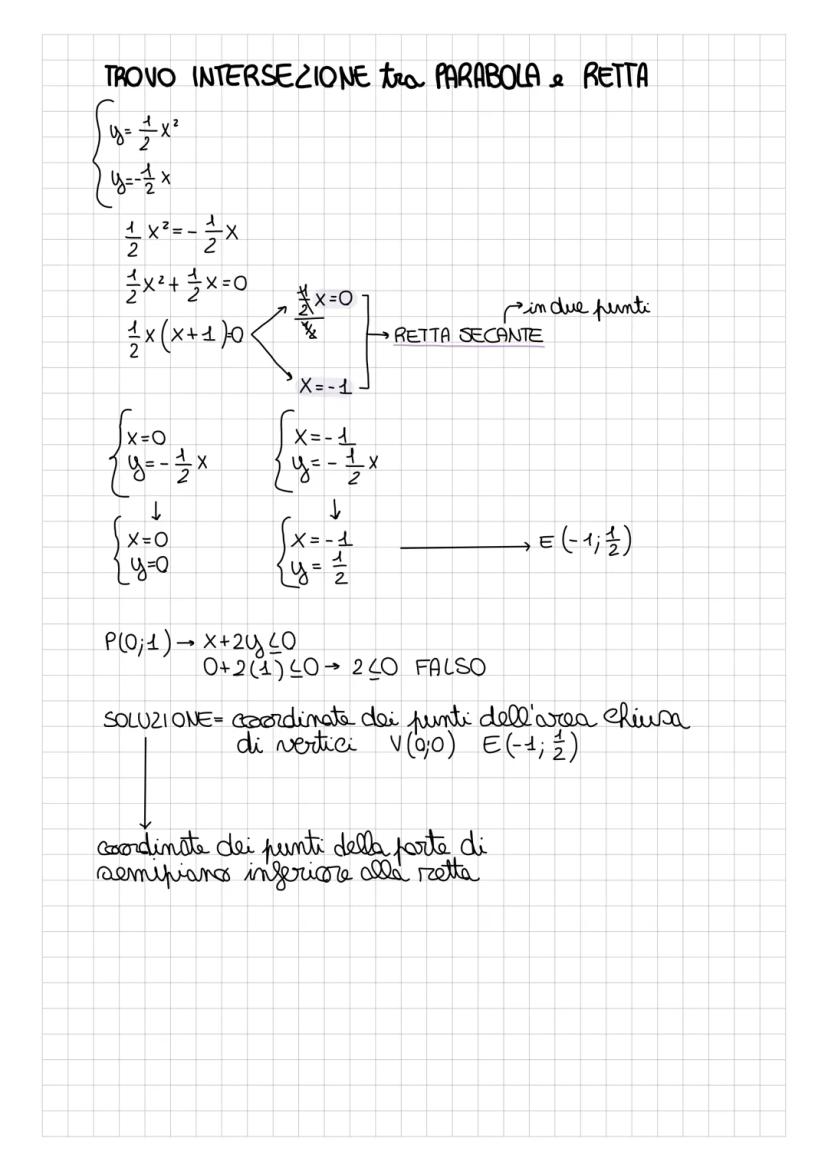 TROVO INTERSEZIONE tra PARABOLA e RETTA
{ y= 1/2 x²
{ y=-1/2 x
1/2 x²= - 1/2 x
1/2 x² + 1/2 x=0
1/2 x (x+1)=0
1/2 x=0
x=-1
→ RETTA SECANTE → in due punti
{ x=0
{ y=- 1/2 x
↓
{ x=0
{ y=0
{ x=-1
{ y=- 1/2 x
↓
{ x=-1
{ y= 1/2
→ E (-1; 1/2)
P(0;1) → x+2y≤0
0+2(1)≤0 → 2≤0 FALSO
SOLUZIONE= coordinate dei punti dell'area chiusa
di vertici V(0;0) E(-1; 1/2)
coordinate dei punti della parte di
semipiano inferiore alla retta